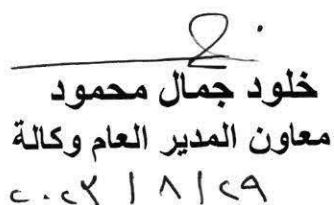 خلود جمال محمود
معاون المدير العام وكالة
٢٠٢٣ / ٨ / ٢٩